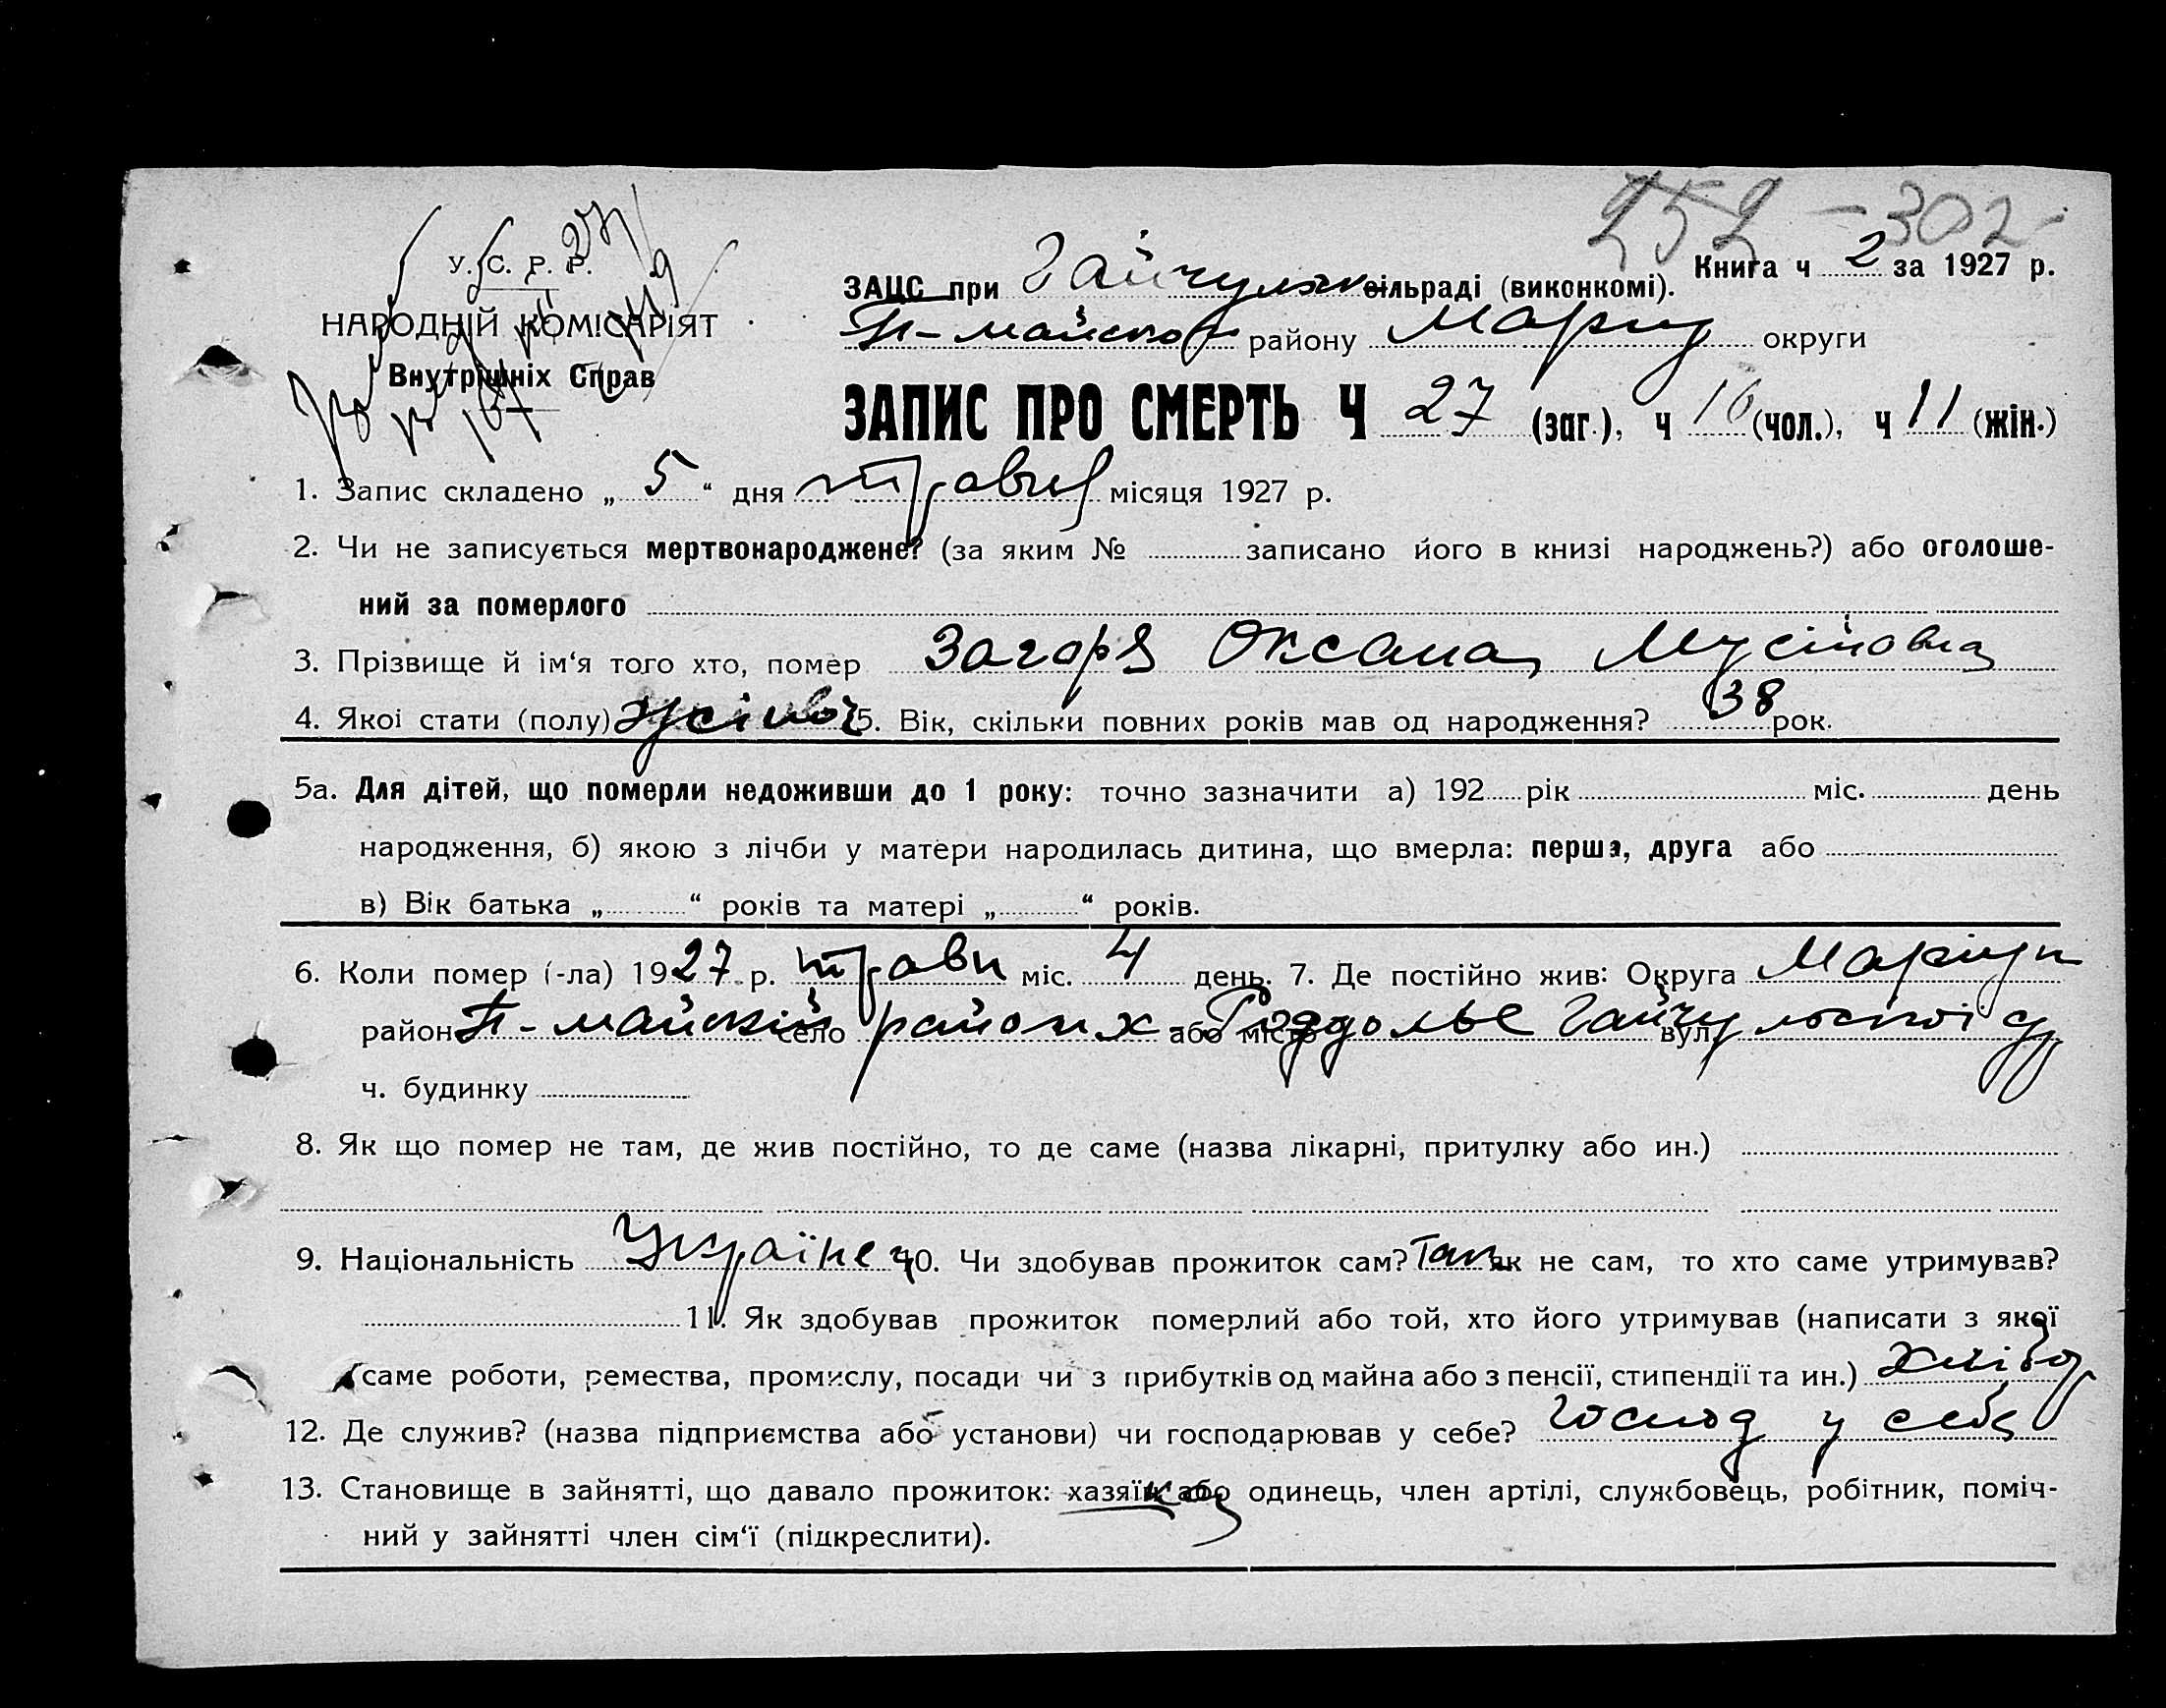 252 - 302
У. С. Р. Р.
НАРОДНІЙ КОМІСАРІЯТ
Внутрішніх Справ
Книга ч 2 за 1927 р.
ЗАЦС при Гайчульск сільраді (виконкомі).
П-майськ району Маріуп округи
ЗАПИС ПРО СМЕРТЬ Ч 27 (заг.), ч 16 (чол.), ч 11 (жін.)
1. Запис складено „ 5 “ дня травня місяця 1927 р.
2. Чи не записується мертвонароджене? (за яким № записано його в книзі народжень?) або оголоше-
ний за померлого
3. Прізвище й ім‘я того хто, помер Загоря Оксана Мусіївна
4. Якої стати (полу) жіноч 5. Вік, скільки повних років мав од народження? 38 рок.
5а. Для дітей, що померли недоживши до 1 року: точно зазначити а) 192 рік міс. день
народження, б) якою з лічби у матери народилась дитина, що вмерла: перша, друга або
в) Вік батька „ “ років та матері „ “ років.
6. Коли помер (-ла) 1927 р. травн міс. 4 день. 7. Де постійно жив: Округа Маріуп
район П-майський село або місто вул.
ч. будинку
8. Як що помер не там, де жив постійно, то де саме (назва лікарні, притулку або ин.)
9. Національність Українец 10. Чи здобував прожиток сам? Так як не сам, то хто саме утримував?
11. Як здобував прожиток померлий або той, хто його утримував (написати з якої
саме роботи, ремества, промислу, посади чи з прибутків од майна або з пенсії, стипендії та ин.) хлібор
12. Де служив? (назва підприємства або установи) чи господарював у себе? господ у себе
13. Становище в зайнятті, що давало прожиток: хазяїн або одинець, член артілі, службовець, робітник, поміч-
ний у зайнятті член сім‘ї (підкреслити).